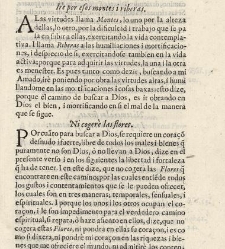 Iré por esos montes i riberas.
A Las virtudes llama Montes, lo uno por la alteza
dellas, lo otro, por la dificultad i trabajo que se pa
sa en subir a ellas, exercitando la vida contempla-
tiva. I llama Riberas a las humillaciones i mortificacio-
nes, i desprecio de si, exercitandose tambien en la vida
activa; porque para adquirir las virtudes, la una i la otra
es menester. Es pues tanto como dezir, buscando a mi
Amado, iré poniendo por obra las virtudes altas, i humi
llandome en las mortificaciones i cosas baxas. Esto dize,
porque el camino de buscar a Dios, es ir obrando en
Dios el bien, i mortificando en si el mal de la manera
que se sigue.
Ni cogeré las flores.
POr cuãto para buscar a Dios, se requiere un coraçõ
desnudo i fuerte, libre de todos los males i bienes q̃
puramente no son Dios, dize en el
presente verso i en los siguientes la libertad i fortaleza
q̃ ha de tener. I en este dize, que no cogerá las Flores q̃
encontrare en este camino, por las quales entiende todos
los gustos i contentamientos que se le pueden ofrecer,
los cuales son en tres maneras, temporales, sensuales, i
espirituales. I porque los unos i los otros ocupan el co-
raçon, i le son impedimento para el verdadero camino
espiritual, si repara, ò haze assiento en ellos, dize, que
no cogerá estas Flores, ni pondrá en ellas su coraçon, es co
mo si dixera, ni pondré mi coraçon en las riquezas i bie-
nes que ofreciere el mundo, ni admitiré los conten-